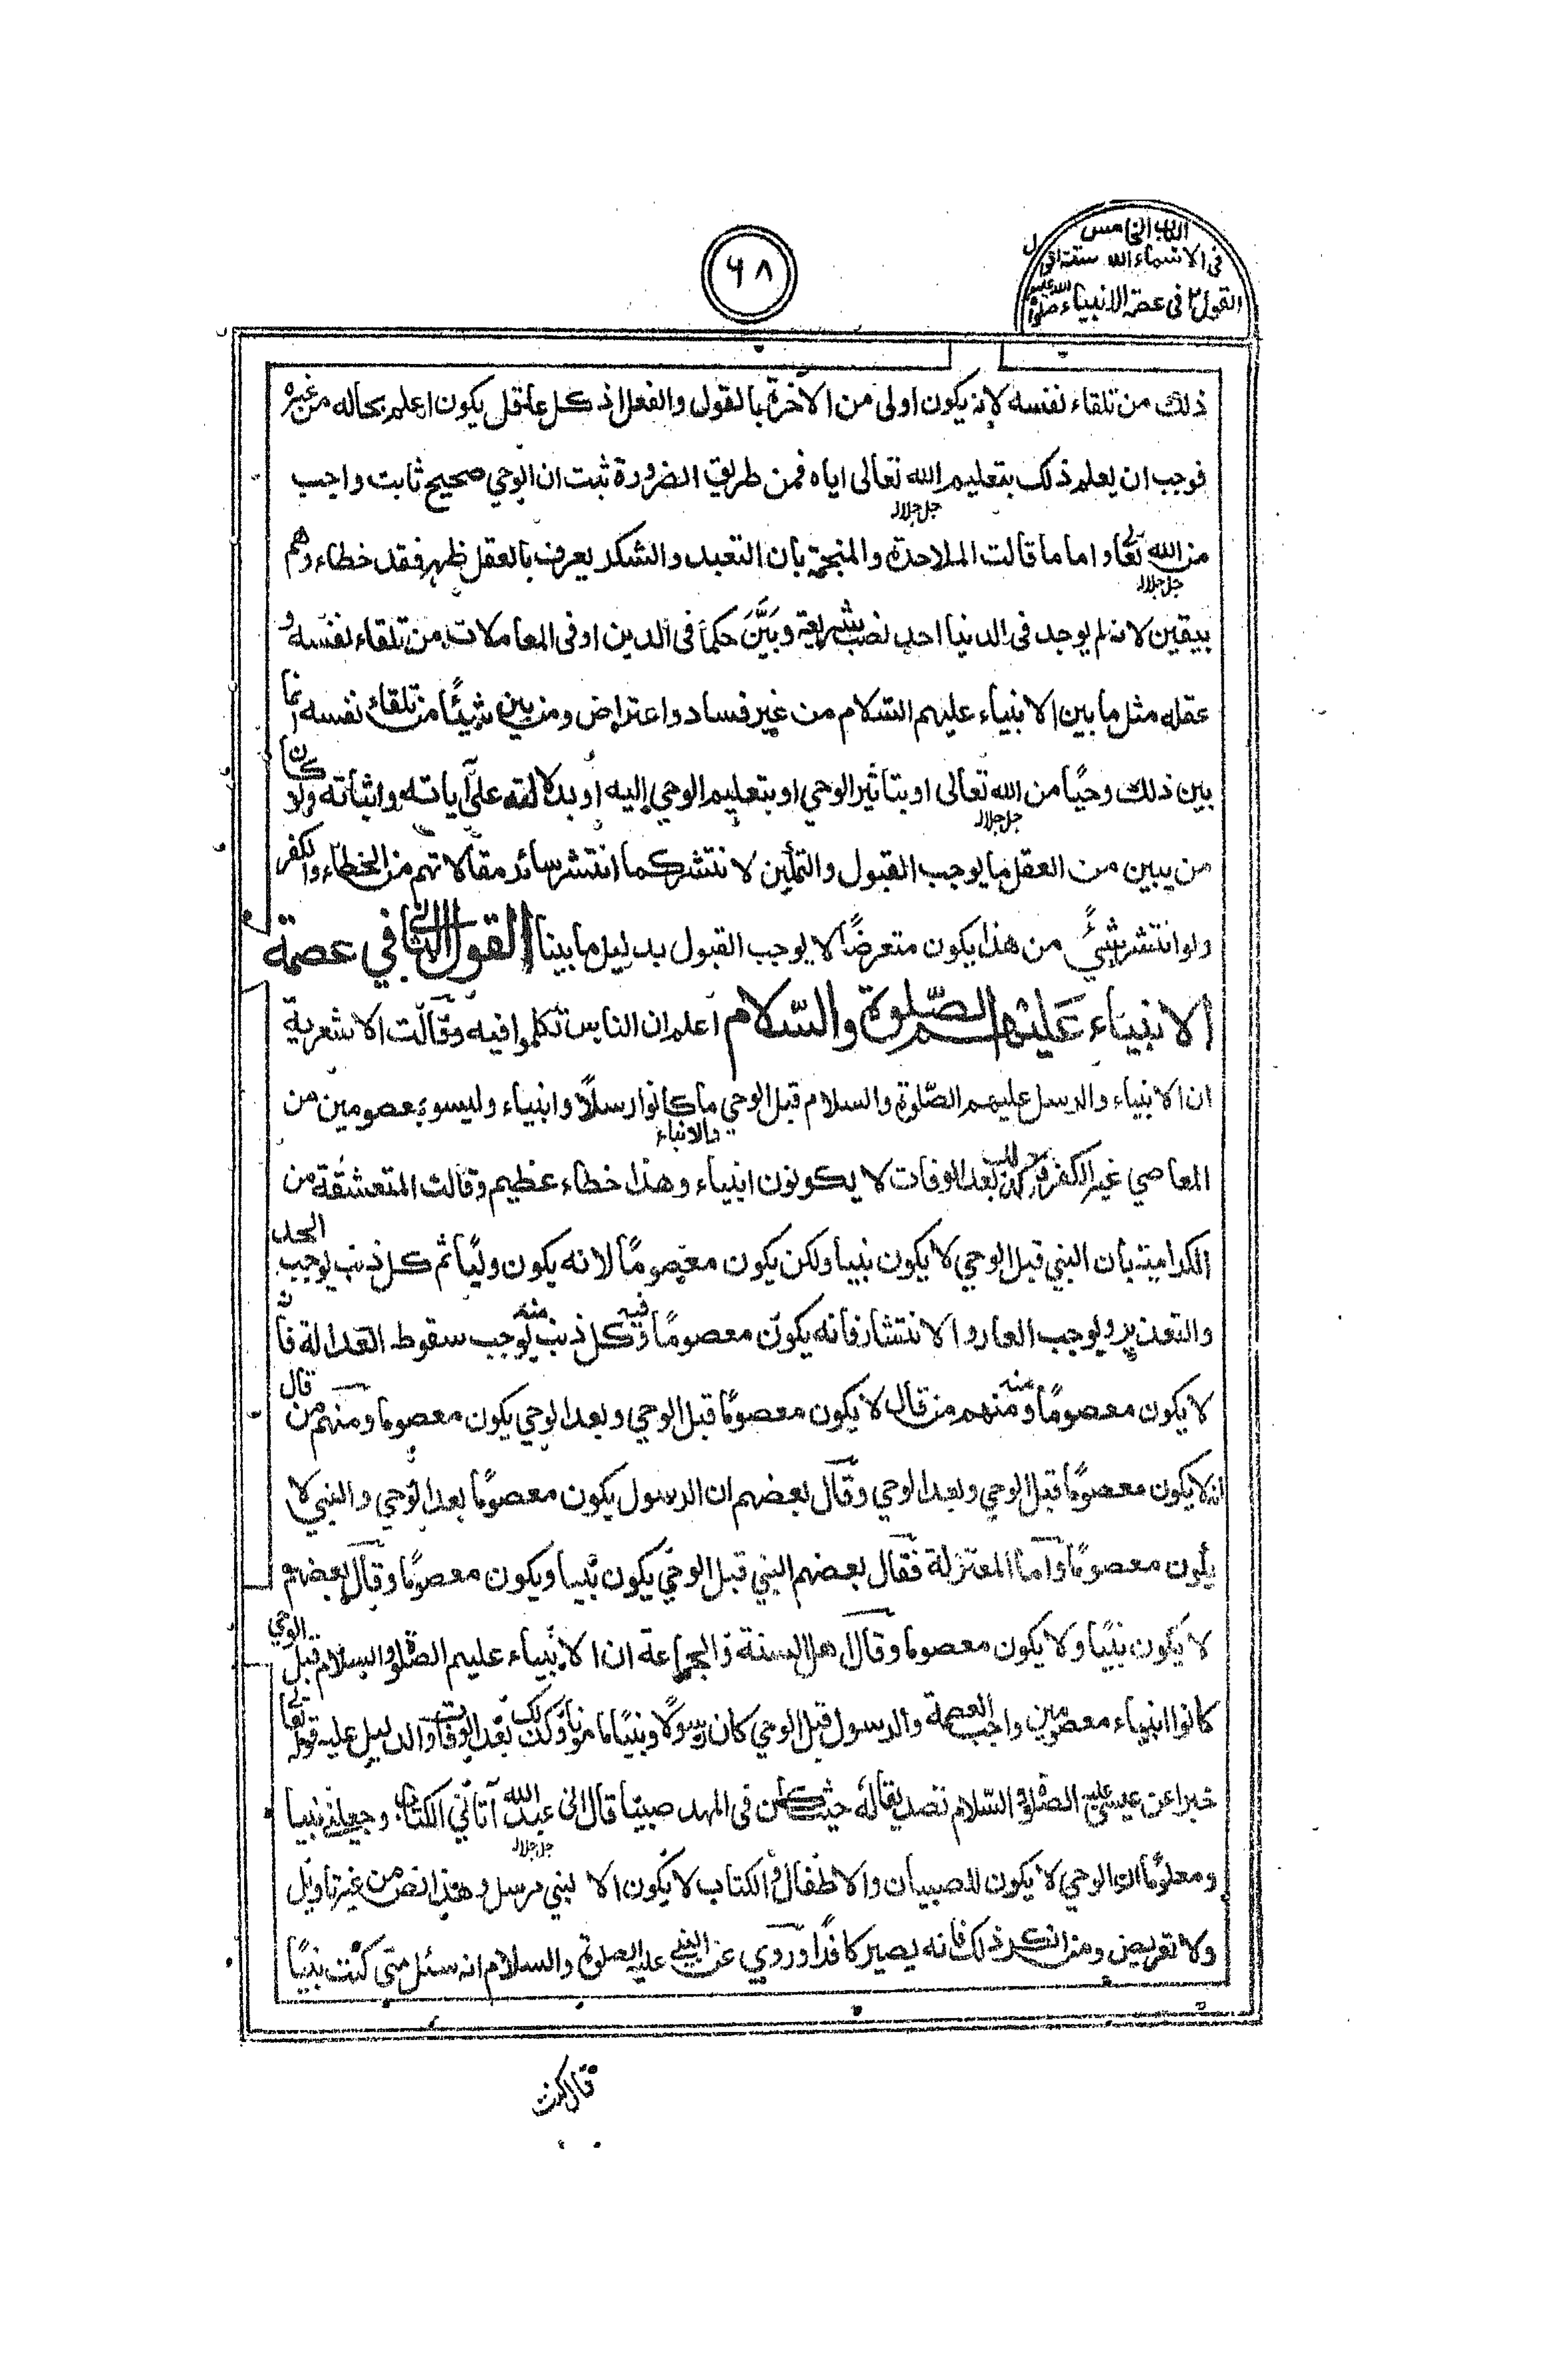 الباب الخامس
فى الاشياء الله
القول ٢ فى عصمة الانبياء صلوة الله عليهم
٦٨
ذلك من تلقاء نفسه لانه يكون اولى من الآخرة بالقول والفعل اذ كل عاقل يكون اعلم بحاله من غيره
فوجب ان يعلم ذلك بتعليم الله تعالى اياه فمن طريق الضرورة ثبت ان الوحي صحيح ثابت واجب
جل جلاله
من الله تعا واما ما قالت الملاحدة والمنجمة بان التعبد والشكر يعرف بالعقل ظهر فقد خطاء وهم
جل جلاله
بيقين لانه لم يوجد فى الدنيا احد نصب شريعة وبَيَّنَ حكما فى الدين او فى المعاملات من تلقاء نفسه و
عقله مثل ما بين الانبياء عليهم السّلام من غير فساد واعتراض ومن بين شيئًا من تلقاء نفسه انما
بين ذلك وحيًا من الله تعالى او بتاثير الوحي او بتعليم الوحي إليه او بدلالته على آياته واثباته ولو كان
جل جلاله
من يبين من العقل ما يوجب القبول والتمكين لانتشر كما انتشر سائر مقالاتهم من الخطاء والكفر
ولو انتشر شئ من هذا يكون متعرضًا لا يوجب القبول بدليل ما بينا القول الثانى في عصمة
الانبياء عَليْهم الصّلوة والسّلام اعلم ان الناس تكلموا فيه وقالت الاشعرية
ان الانبياء والرسل عليهم الصّلوة والسلام قبل الوحي ما كانوا رسلًا وانبياء وليسو بمعصومين من
والانبياء
المعاصي غير الكفر وكذلك بعد الوفات لا يكونون انبياء وهذا خطاء عظيم وقالت المتعشقة من
الكرامية بأن النبي قبل الوحي لا يكون نبيا ولكن يكون معصومًا لانه يكون وليًا ثم كل ذنب يوجب الحد
والتعذير ويوجب العار والانتشار فانه يكون معصومًا فيه وكل ذنب منه يوجب سقوط العدالة فانه
لا يكون معصومًا منه ومنهم من قال لا يكون معصومًا قبل الوحي وبعد الوحي يكون معصوما ومنهم من قال
انه لا يكون معصومًا قبل الوحي وبعد الوحي وقال بعضهم ان الرسول يكون معصومًا بعد الوحي والنبي لا
يكون معصومًا واما المعتزلة فقال بعضهم النبي قبل الوحي يكون نبيا ويكون معصومًا وقال بعضهم
لا يكون نبيًا ولا يكون معصوما وقال اهل السنة والجماعة ان الانبياء عليهم الصّلوة والسلام قبل الوحي
كانوا انبياء معصومين واجب العصمة والرسول قبل الوحي كان رسولًا ونبيًا مامونا وكذلك بعد الوفات والدليل عليه قوله تعالى
خبرا عن عيسى عليه الصّلوة والسّلام تصديقا له حيث كان فى المهد صبيّا قال انى عبد الله آتاني الكتاب وجعلني نبيا
جل جلاله
ومعلومًا ان الوحي لا يكون للصبيان والاطفال والكتاب لا يكون الا لنبي مرسل وهذا نص من غير تاويل
ولا تعريض ومن انكر ذلك فانه يصير كافرًا وروي عن النبي عليه الصلوة والسلام انه سئل متى كنت نبيًا
قال كنت